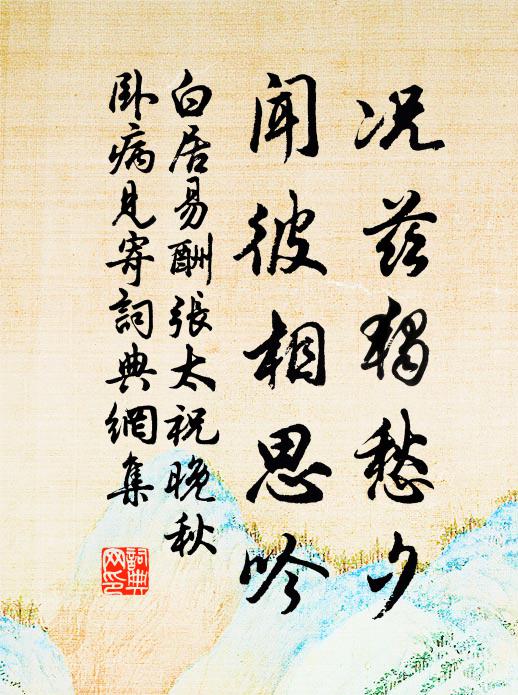 况兹独愁夕
闻彼相思吟
白居易酬張太祝晚秋
卧病見寄詞典網集
詞典
网印